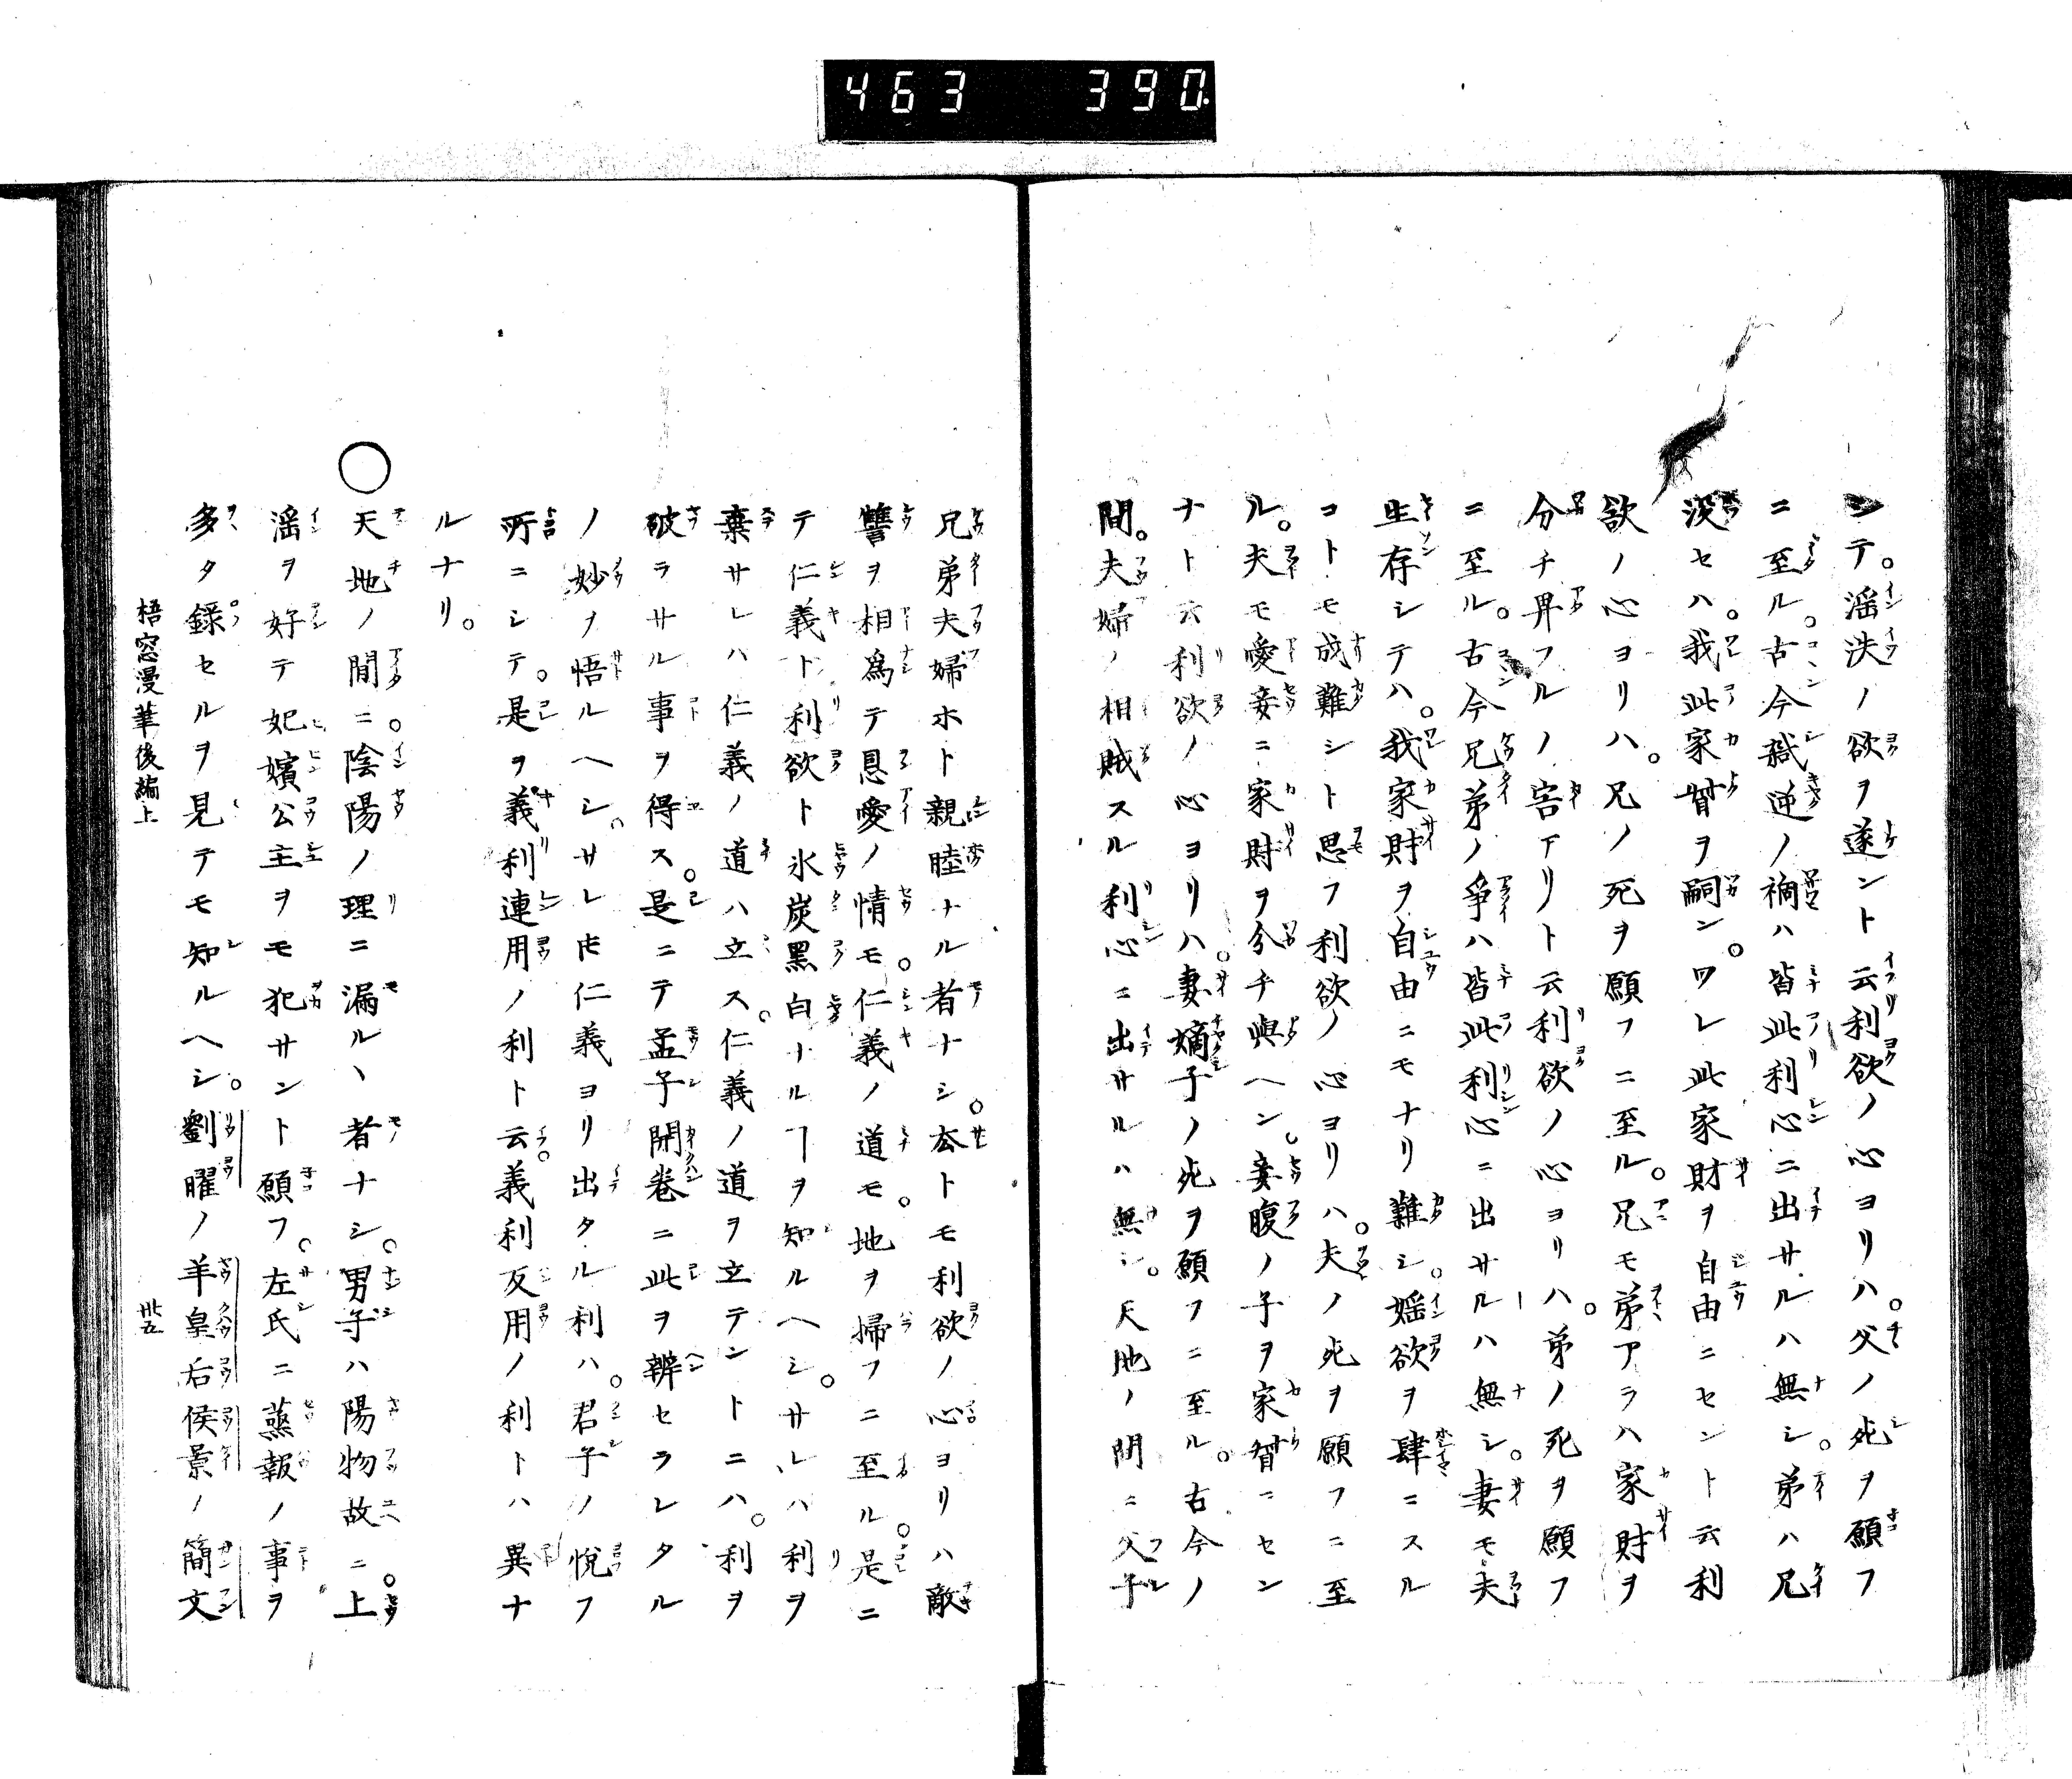 463 390
シテ。滛泆ノ欲ヲ遂ント云利欲ノ心ヨリハ。父ノ死ヲ願フ
ニ至ル。古今弑逆ノ禍ハ皆此利心ニ出サルハ無シ。弟ハ兄
没セハ。我此家督ヲ嗣ン。ワレ此家財ヲ自由ニセント云利
欲ノ心ヨリハ。兄ノ死ヲ願フニ至ル。兄モ弟アラハ家財ヲ
分チ畀フルノ害アリト云利欲ノ心ヨリハ。弟ノ死ヲ願フ
ニ至ル。古今兄弟ノ爭ハ皆此利心ニ出サルハ無シ。妻モ夫
生存シテハ。我家財ヲ自由ニモナリ難シ。婬欲ヲ肆ニスル
コトモ成難シト思フ利欲ノ心ヨリハ。夫ノ死ヲ願フニ至
ル。夫モ愛妾ニ家財ヲ分チ與ヘン。妾腹ノ子ヲ家督ニセン
ナト云利欲ノ心ヨリハ。妻嫡子ノ死ヲ願フニ至ル。古今ノ
間。夫婦ノ相賊スル利心ニ出サルハ無シ。天地ノ間ニ父子
兄弟夫婦ホト親睦ナル者ナシ。去トモ利欲ノ心ヨリハ敵
讐ヲ相爲テ恩愛ノ情モ。仁義ノ道モ。地ヲ掃フニ至ル。是ニ
テ仁義ト利欲ト氷炭黑白ナルヿヲ知ルヘシ。サレハ利ヲ
棄サレハ仁義ノ道ハ立ス。仁義ノ道ヲ立テントニハ。利ヲ
破ラサル事ヲ得ス。是ニテ孟子開卷ニ此ヲ辨セラレタル
ノ妙ヲ悟ルヘシ。サレ𪜈仁義ヨリ出タル利ハ。君子ノ悅フ
所ニシテ。是ヲ義利連用ノ利ト云。義利反用ノ利トハ異ナ
ルナリ。
○天地ノ間ニ。陰陽ノ理ニ漏ルヽ者ナシ。男子ハ陽物故ニ。上
滛ヲ好テ妃嬪公主ヲモ犯サント願フ。左氏ニ蒸報ノ事ヲ
多タ錄セルヲ見テモ知ルヘシ。劉曜ノ羊皇后侯景ノ簡文
梧窓漫筆後編上 卅五